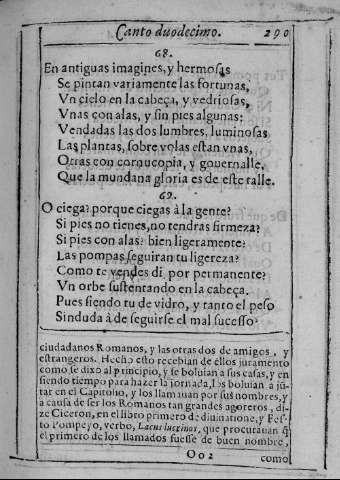 Canto duodecimo. 290
68.
En antiguas imagines, y hermosas
Se pintan variamente las fortunas,
Vn cielo en la cabeça, y vedriosas,
Vnas con alas, y sin pies algunas:
Vendadas las dos lumbres, luminosas
Las plantas, sobre volas estan vnas,
Otras con cornucopia, y gouernalle,
Que la mundana gloria es de este talle.
69.
O ciega? porque ciegas à la gente?
Si pies no tienes, no tendras firmeza?
Si pies con alas? bien ligeramente?
Las pompas seguiran tu ligereza?
Como te vendes di por permanente?
Vn orbe sustentando en la cabeça.
Pues siendo tu de vidro, y tanto el peso
Sin duda à de seguirse el mal sucesso.
ciudadanos Romanos, y las otras dos de amigos, y
estrangeros. Hecho esto recebian de ellos juramento
como se dixo al principio, y se boluian a sus casas, y en
siendo tiempo para hazer la jornada, los boluian a jū-
tar en el Capitolio, y los llamauan por sus nombres, y
a causa de ser los Romanos tan grandes agoreros, di-
ze Ciceron, en el libro primero de diuinatione, y Fes-
to Pompeyo, verbo, Lacus lucrinos, que procurauan q̃
el primero de los llamados fuesse de buen nombre,
Oo2 como